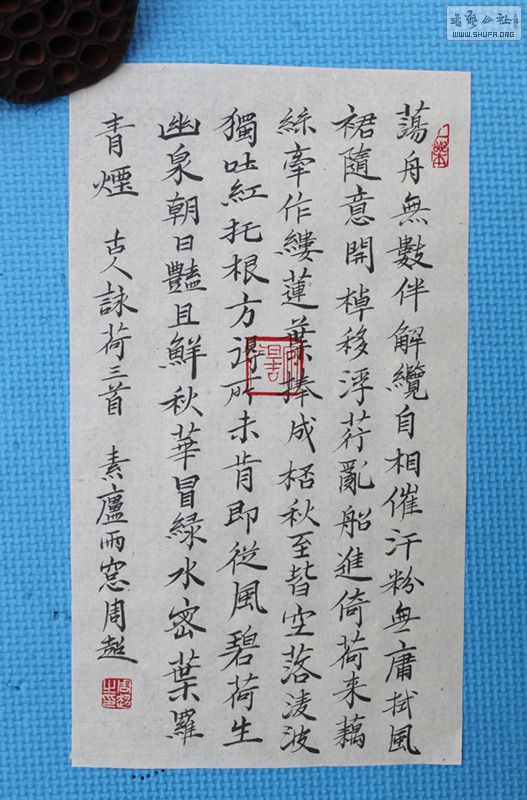 蕩舟無數伴解纜自相催汗粉無庸拭風
裙隨意開棹移浮荇亂船進倚荷來藕
絲牽作縷蓮葉捧成桮秋至皆空落淩波
獨吐紅托根方得所未肯即從風碧荷生
幽泉朝日豔且鮮秋華冒綠水密葉羅
青煙 古人詠荷三首 素廬雨窓周超
周超之印
書藝公社
WWW.SHUFA.ORG